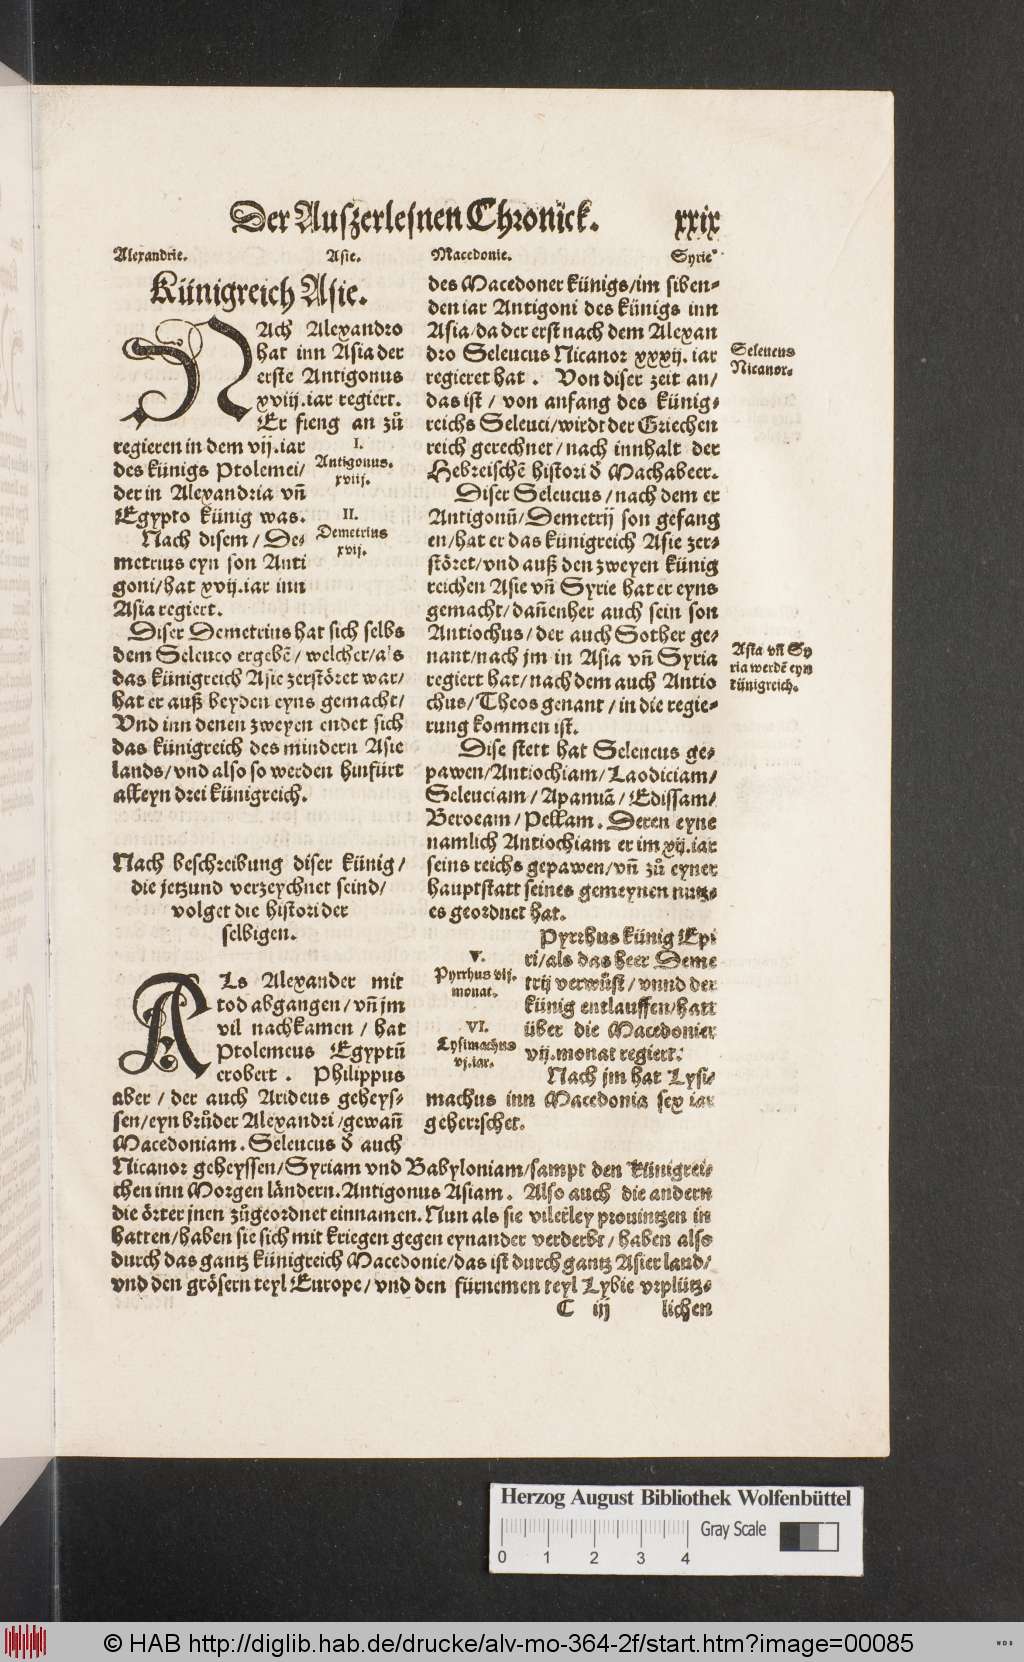 Der Auſzerleſnen Chronick. xxix
Alexandrie. Aſie. Macedonie. Syrie
Künigreich Aſie.
NAch Alexandro
hat inn Aſia der
erſte Antigonus
xviij.iar regiert.
Er fieng an zů
regieren in dem vij.iar
des künigs Ptolemei/
der in Alexandria vñ
Egypto künig was.
I.
Antigonus.
xviij.
Nach diſem/De-
metrius eyn ſon Anti
goni/hat xvij.iar inn
Aſia regiert.
II.
Demetrius
xvij.
Diſer Demetrius hat ſich ſelbs
dem Seleuco ergebẽ/welcher/als
das künigreich Aſie zerſtöret war/
hat er auß beyden eyns gemacht/
Vnd inn denen zweyen endet ſich
das künigreich des mindern Aſie
lands/vnd alſo ſo werden hinfürt
alleyn drei künigreich.
Nach beſchreibung diſer künig/
die jetzund verzeychnet ſeind/
volget die hiſtori der
ſelbigen.
ALs Alexander mit
tod abgangen/vñ jm
vil nachkamen/hat
Ptolemeus Egyptũ
erobert. Philippus
aber/der auch Arideus geheyſ-
ſen/eyn brůder Alexandri/gewañ
Macedoniam. Seleucus ð auch
des Macedoner künigs/im ſiben-
den iar Antigoni des künigs inn
Aſia/da der erſt nach dem Alexan
dro Seleucus Nicanor xxxij.iar
regieret hat. Von diſer zeit an/
das iſt/von anfang des künig-
reichs Seleuci/wirdt der Griechen
reich gerechnet/nach innhalt der
Hebreiſchẽ hiſtori ð Machabeer.
Seleucus
Nicanor.
Diſer Seleucus/nach dem er
Antigonũ/Demetrij ſon gefang
en/hat er das künigreich Aſie zer-
ſtöret/vnd auß den zweyen künig
reichen Aſie vñ Syrie hat er eyns
gemacht/dañenher auch ſein ſon
Antiochus/der auch Sother ge-
nant/nach jm in Aſia vñ Syria
regiert hat/nach dem auch Antio
chus/Theos genant/in die regie-
rung kommen iſt.
Aſia vñ Sy
ria werdẽ eyn
künigreich.
Diſe ſtett hat Seleucus ge-
pawen/Antiochiam/Laodiciam/
Seleuciam/Apamiã/Ediſſam/
Beroeam/Pellam. Deren eyne
namlich Antiochiam er im xij.iar
ſeins reichs gepawen/vñ zů eyner
hauptſtatt ſeines gemeynen nutz-
es geordnet hat.
Pyrrhus künig Epi
ri/als das heer Deme
trij verwůſt/vnnd der
künig entlauffen/hatt
über die Macedonier
vij.monat regiert.
V.
Pyrrhus vij.
monat.
VI.
Lyſimachus
vj.iar.
Nach jm hat Lyſi-
machus inn Macedonia ſex iar
geherrſchet.
Nicanor geheyſſen/Syriam vnd Babyloniam/ſampt den künigrei-
chen inn Morgen ländern. Antigonus Aſiam. Alſo auch die andern
die örter jnen zůgeordnet einnamen. Nun als ſie vilerley prouintzen in
hatten/haben ſie ſich mit kriegen gegen eynander verderbt/haben alſo
durch das gantz künigreich Macedonie/das iſt durch gantz Aſier land/
vnd den gröſern teyl Europe/vnd den fürnemen teyl Lybie vrplütz-
C iij lichen
Herzog August Bibliothek Wolfenbüttel
Gray Scale
0 1 2 3 4
© HAB http://diglib.hab.de/drucke/alv-mo-364-2f/start.htm?image=00085